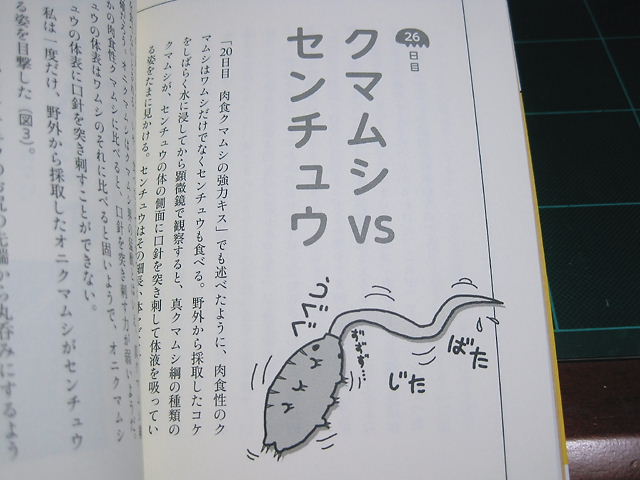 26
日目
クマムシ vs
センチュウ
「20日目　肉食クマムシの強力キス」でも述べたように、肉食性のク
マムシはワムシだけでなくセンチュウも食べる。野外から採取したコケ
をしばらく水に浸してから顕微鏡で観察すると、真クマムシ綱の種類の
クマムシが、センチュウの体の側面に口針を突き刺して体液を吸ってい
る姿をたまに見かける。センチュウはその細長い体を
ぐぐぐ
ずずず…
じた
ばた
かの肉食性クマムシに比べると、口針を突き刺す力が弱い
ュウの体表はワムシのそれに比べると固いようで、オニクマムシ
ュウの体表に口針を突き刺すことができない。
私は一度だけ、野外から採取したオニクマムシがセンチュウ
る姿を目撃した（図3）。
の先端から丸呑みにするよう